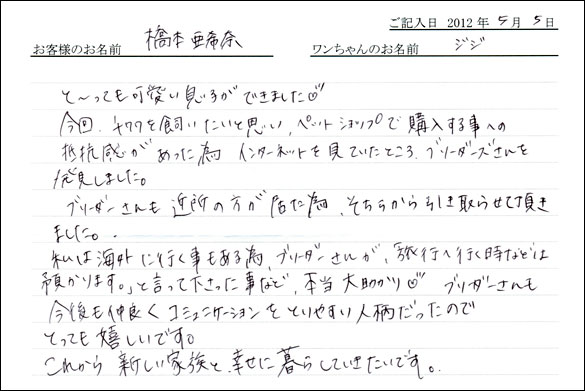 ご記入日 2012年5月5日
お客様のお名前 橋本亜希奈 ワンちゃんのお名前 ジジ
と〜っても可愛い息子ができました♡
今回、チワワを飼いたいと思い、ペットショップで購入する事への
抵抗感があった為 インターネットを見ていたところ、ブリーダーズさんを
発見しました。
ブリーダーさんも近所の方が居た為、そちらから引き取らせて頂き
ました。
私は海外に行く事もある為、ブリーダーさんが、「旅行へ行く時などは
預かります。」と言って下さった事など、本当大助かり♡ ブリーダーさんも
今後も仲良くコミュニケーションをとりやすい人柄だったので
とっても嬉しいです。
これから新しい家族と、幸せに暮らしていきたいです。